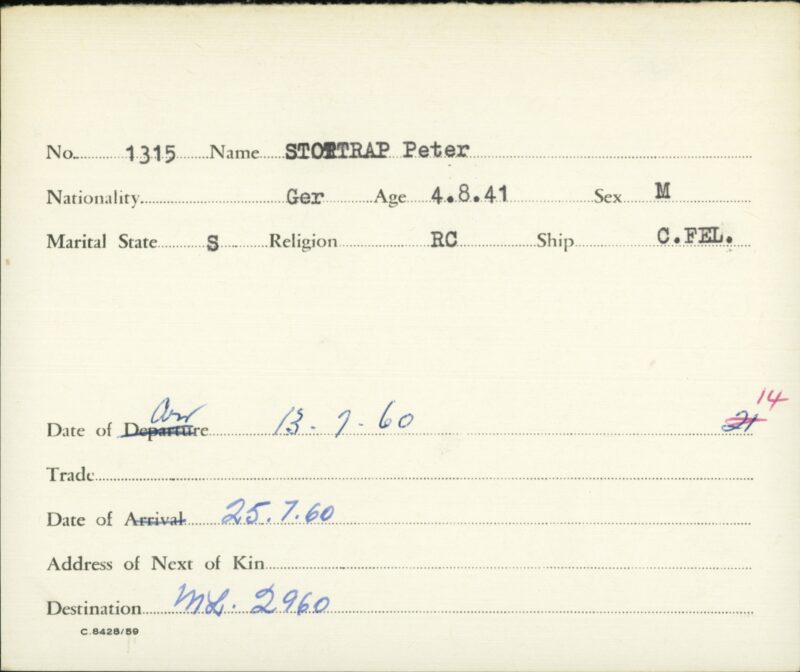 No. 1315 Name STOTTRAP Peter
Nationality Ger Age 4.8.41 Sex M
Marital State S Religion RC Ship C.FEL.
14
Arr
Date of Departure 13.7.60 21
Trade
Date of Arrival 25.7.60
Address of Next of Kin
Destination ML. 2960
C.8428/59